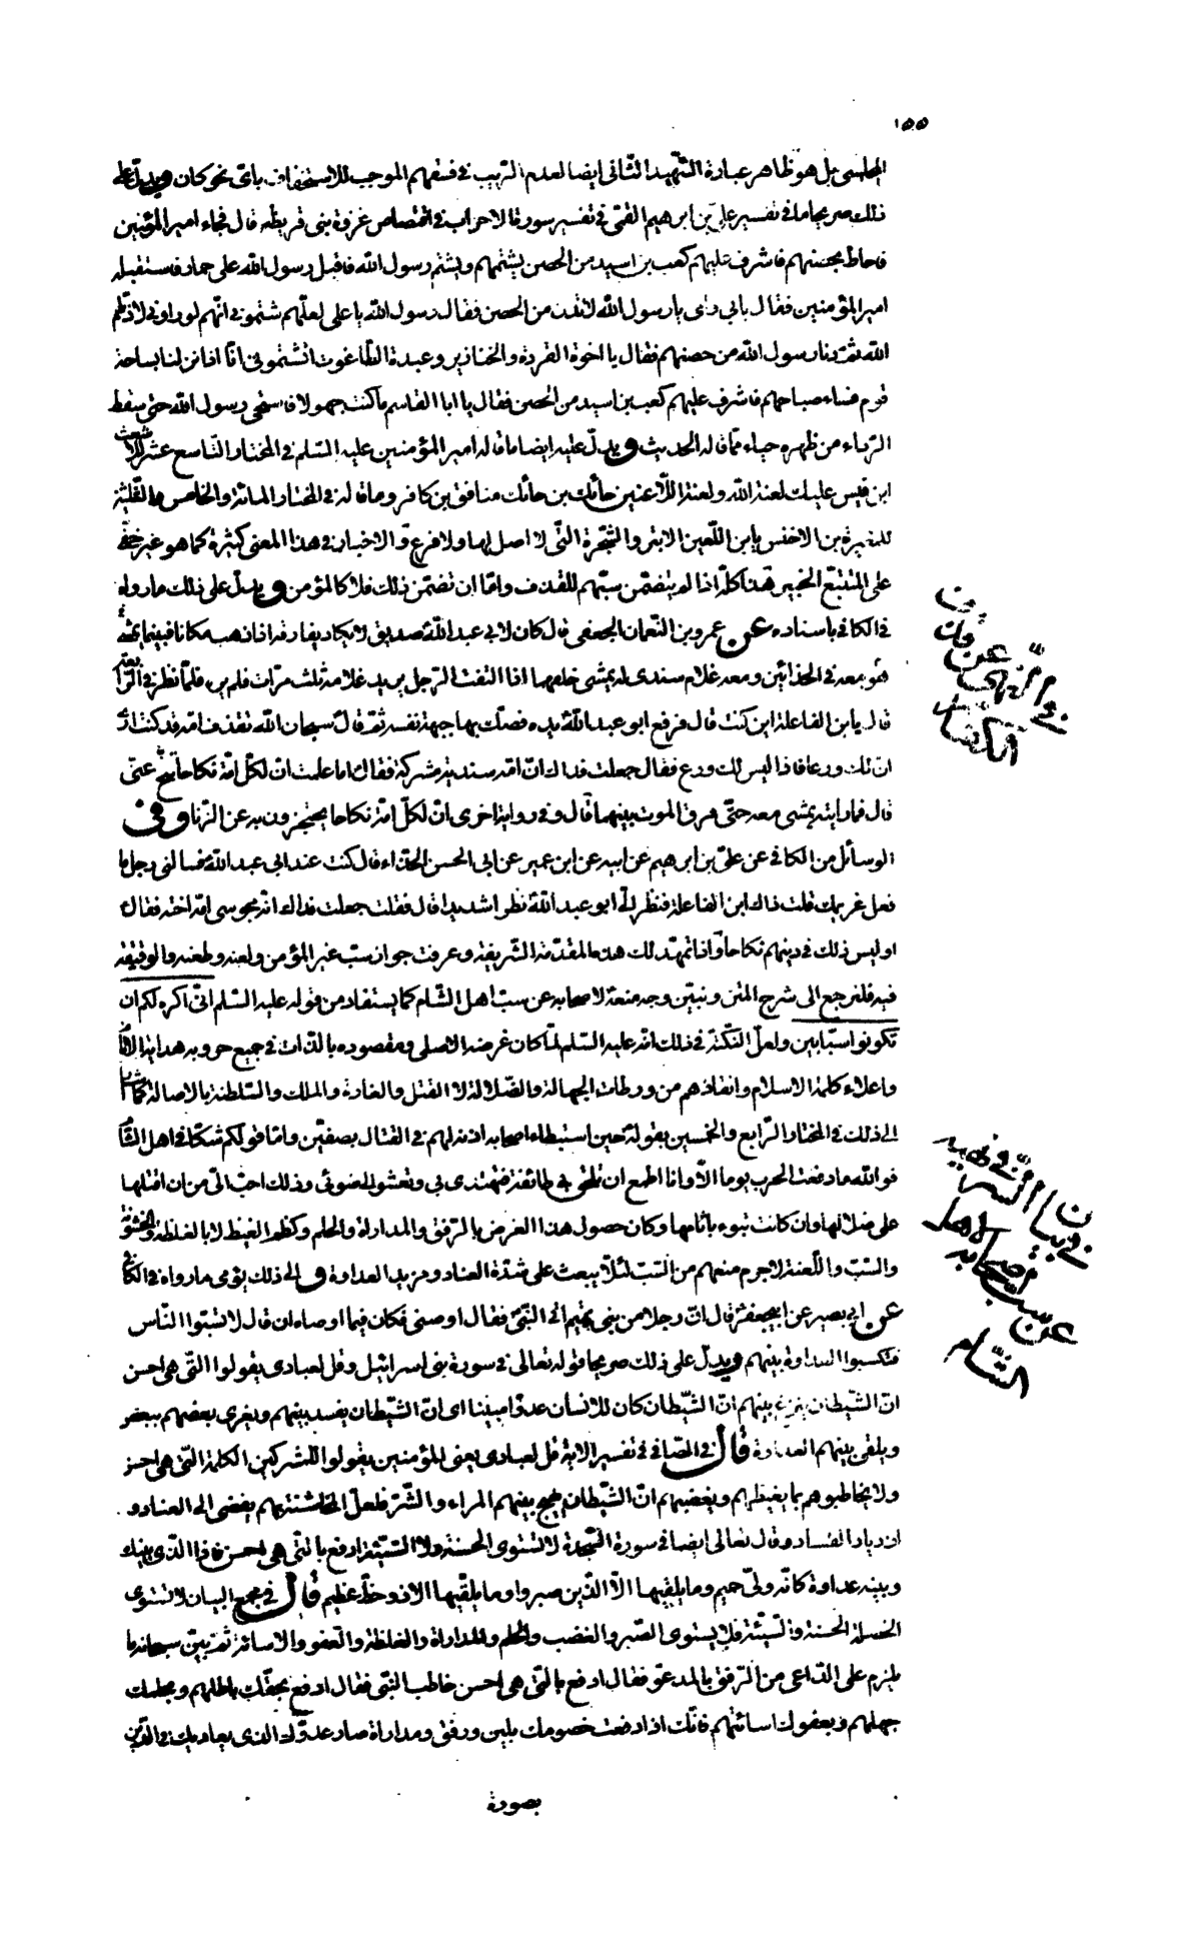 ١٥٥
المجلسى بل هو ظاهر عبارة الشهيد الثانى ايضا لعدم الريب فى فسقهم الموجب للاستخفاف باى نحو كان ويدل على
ذلك صريحا ما فى تفسير على بن ابرهيم القمى فى تفسير سورة الاحزاب فى اقتصاص غزوة بنى قريظه قال فجاء امير المؤمنين
فاحاط بحصنهم فاشرف عليهم كعب بن اسيد من الحصن يشتمهم ويشتم رسول الله فاقبل رسول الله على حمار فاستقبله
امير المؤمنين فقال بابى وامى يا رسول الله لا تدن من الحصن فقال رسول الله يا على لعلهم شتمونى انهم لو راونى لاذلهم
الله ثم دنا رسول الله من حصنهم فقال يا اخوة القردة والخنازير وعبدة الطاغوت اتشتمونى انا اذا نزلنا بساحة
قوم فساء صباحهم فاشرف عليهم كعب بن اسيد من الحصن فقال يا ابا القاسم ما كنت جهولا فاستحى رسول الله حتى سقط
الرداء من ظهره حياء مما قاله الحديث ويدل عليه ايضا ما قاله امير المؤمنين عليه السلم فى المختار التاسع عشر للاشعث
ابن قيس عليك لعنة الله ولعنة اللاعنين حائك بن حائك منافق بن كافر وما قاله فى المختار المائة والخامس والثلثين
للمغيرة بن الاخنس يابن اللعين الابتر والشجرة التى لا اصل لها ولا فرع والاخبار فى هذا المعنى كثيرة كما هو غير خفى
على المتتبع الخبير هذا كله اذا لم يتضمن سبهم للقذف واما ان تضمن ذلك فلا كالمؤمن ويدل على ذلك ما رواه
فى الكافى باسناده عن عمرو بن النعمان الجعفى قال كان لابى عبد الله صديق لا يكاد يفارقه اذا ذهب مكانا فبينما يمشى
هو معه فى الحذائين ومعه غلام سندى له يمشى خلفهما اذا التفت الرجل يريد غلامه ثلث مرات فلم يره فلما نظر فى الرابعة
قال يابن الفاعلة اين كنت قال فرفع ابو عبد الله يده فصك بها جبهة نفسه ثم قال سبحان الله تقذف امه قد كنت ارى
ان لك ورعا فاذا ليس لك ورع فقال جعلت فداك ان امه سندية مشركة فقال اما علمت ان لكل امة نكاحا تنح عنى
قال فما رايته يمشى معه حتى فرق الموت بينهما قال وفى رواية اخرى ان لكل امة نكاحا يحتجزون به عن الزنا وفى
الوسائل من الكافى عن على بن ابرهيم عن ابيه عن ابن عمير عن ابى الحسن الحذاء قال كنت عند ابى عبد الله فسالنى رجل ما
فعل غريمك قلت ذاك ابن الفاعلة فنظر الى ابو عبد الله نظرا شديدا قال فقلت جعلت فداك انه مجوسى امه اخته فقال
او ليس ذلك فى دينهم نكاحا واذا تمهد لك هذه المقدمة الشريفة وعرفت جواز سب غير المؤمن ولعنه وطعنه والوقيعة
فيه فلنرجع الى شرح المتن ونبين وجه منعه لاصحابه عن سب اهل الشام كما يستفاد من قوله عليه السلم انى اكره لكم ان
تكونوا سبابين ولعل النكتة فى ذلك انه عليه السلم لما كان غرضه الاصلى ومقصوده بالذات فى جميع حروبه هداية الانام
واعلاء كلمة الاسلام وانقاذهم من ورطات الجهالة والضلالة لا القتل والغارة والملك والسلطنة بالاصالة كما اشار
الى ذلك فى المختار الرابع والخمسين بقوله حين استبطاء اصحابه اذنه لهم فى القتال بصفين واما قولكم شكا فى اهل الشام
فوالله ما دفعت الحرب يوما الا وانا اطمع ان تلحق بى طائفة فتهتدى بى وتعشو الى ضوئى وذلك احب الى من ان اقتلها
على ضلالها وان كانت تبوء باثامها وكان حصول هذا الغرض بالرفق والمداراة والحلم وكظم الغيظ لا بالغلظة والخشونة
والسب واللعنة لا جرم منعهم من السب لئلا يبعث على شدة العناد ومزيد العداوة والى ذلك يؤمى ما رواه فى الكافى
عن ابى بصير عن ابيجعفر قال ان رجلا من بنى تميم اتى النبى فقال اوصنى فكان فيما اوصاه ان قال لا تسبوا الناس
فتكسبوا العداوة بينهم ويدل على ذلك صريحا قوله تعالى فى سورة بنى اسرائيل وقل لعبادى يقولوا التى هى احسن
ان الشيطان ينزغ بينهم ان الشيطان كان للانسان عدوا مبينا اى ان الشيطان يفسد بينهم ويغرى بعضهم ببعض
ويلقى بينهم العداوة قال فى الصافى فى تفسير الاية قل لعبادى يعنى المؤمنين يقولوا للمشركين الكلمة التى هى احسن
ولا يخاطبوهم بما يغيظهم ويغضبهم ان الشيطان يهيج بينهم المراء والشر فلعل المخاشنة بهم يفضى الى العناد و
ازدياد الفساد وقال تعالى ايضا فى سورة السجدة لا تستوى الحسنة ولا السيئة ادفع بالتى هى احسن فاذا الذى بينك
وبينه عداوة كانه ولى حميم وما يلقيها الا الذين صبروا وما يلقيها الا ذو حظ عظيم قال فى مجمع البيان لا تستوى
الخصلة الحسنة والسيئة فلا يستوى الصبر والغضب والحلم والمداراة والغلظة والعفو والاسائة ثم بين سبحانه ما
يلزم على الداعى من الرفق بالمدعو فقال ادفع بالتى هى احسن خاطب النبى فقال ادفع بحقك باطلهم وبحلمك
جهلهم وبعفوك اسائتهم فانك اذا دفعت خصومك بلين ورفق ومداراة صار عدوك الذى يعاديك فى الدين
بصورة
عن قذف
الكفار
عن سب اهل
الشام